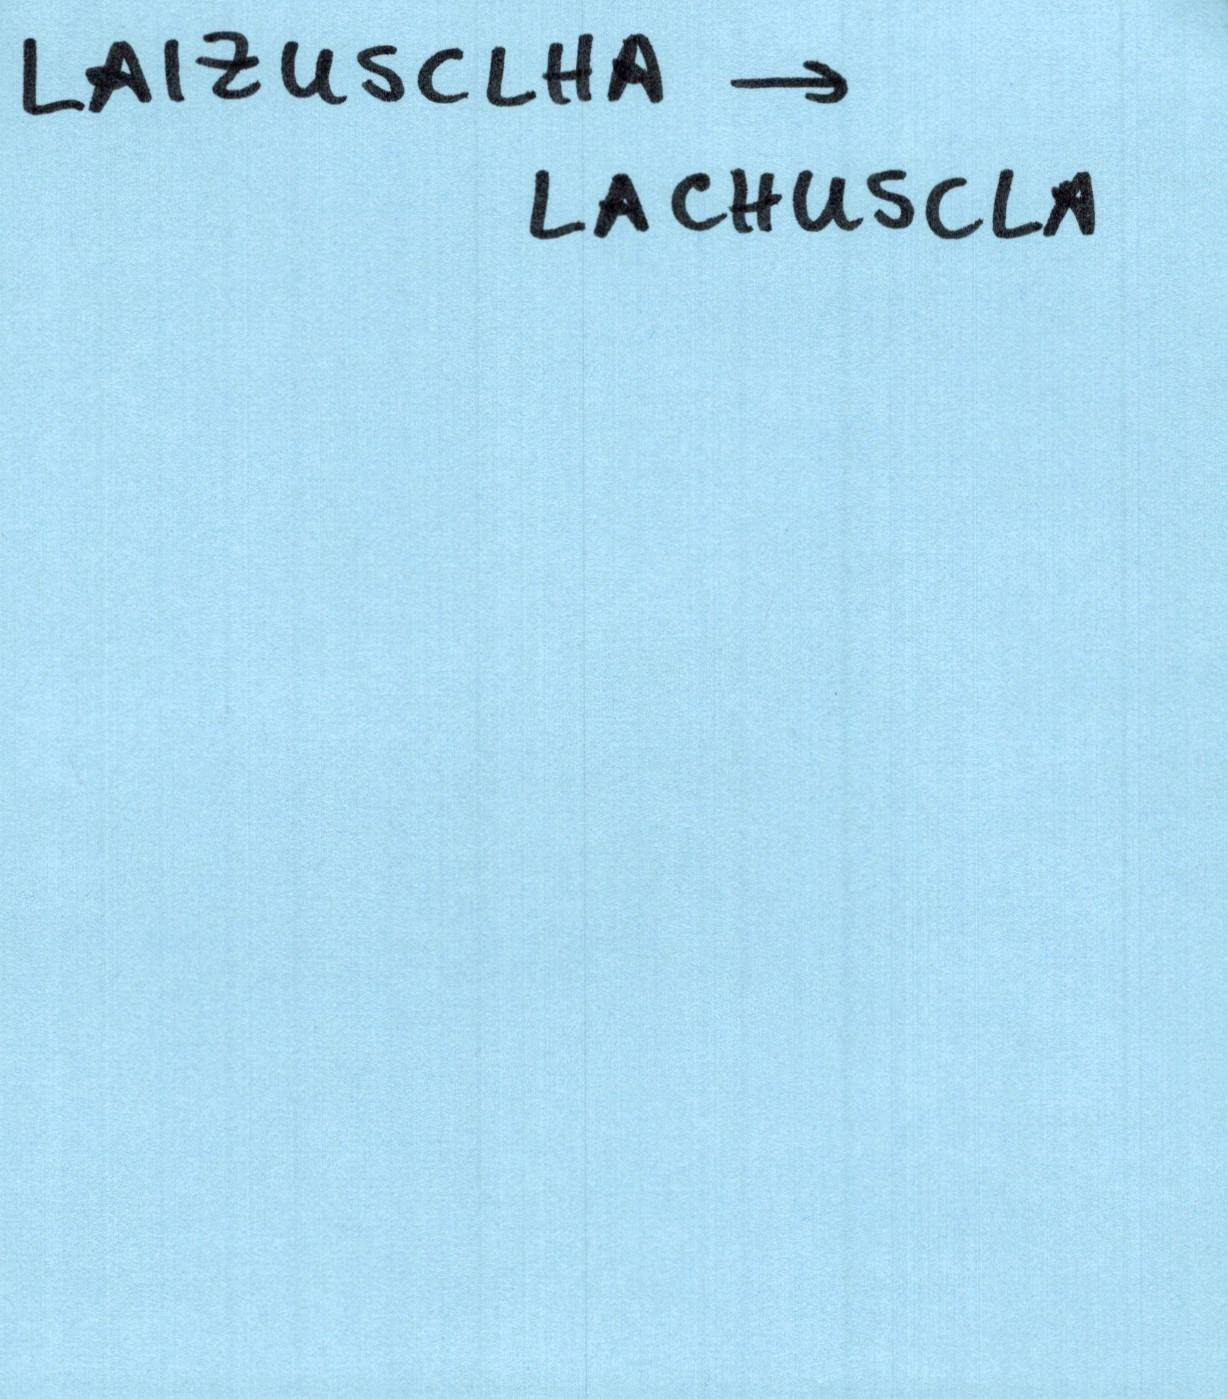 LAIZUSCLHA →
LACHUSCLA